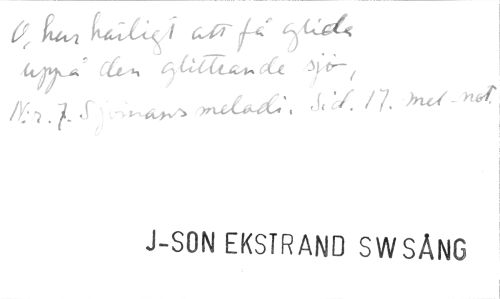 O, hur härligt att få glida
uppå den glittrande sjö,
N:r. 7. Sjömans melodi. Sid. 17. mel-not.
J-SON EKSTRAND SWSÅNG